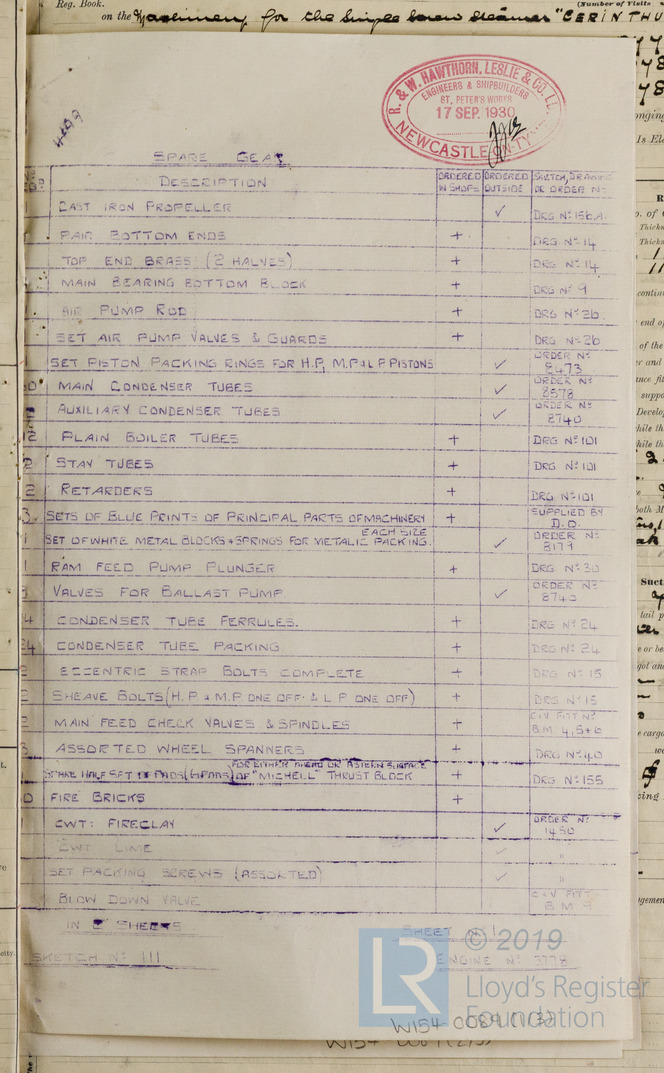 Reg. Book.
(Number of Visits
on the Machinery for the Single Screw Steamer "CERINTHU
R. & W. HAWTHORN, LESLIE & CO. L
ENGINEERS & SHIPBUILDERS
ST. PETER'S WORKS
17 SEP. 1930
NEWCASTLE-ON-TY
SPARE GEAR
DESCRIPTION ORDERED IN SHOPS ORDERED OUTSIDE SKETCH, DRAWING OR ORDER No
1 CAST IRON PROPELLER ✓ DRG No 156.A.
PAIR BOTTOM ENDS + DRG No 14
TOP END BRASS (2 HALVES) + DRG No 14
MAIN BEARING BOTTOM BLOCK + DRG No 9
AIR PUMP ROD + DRG No 26
SET AIR PUMP VALVES & GUARDS + DRG No 26
SET PISTON PACKING RINGS FOR H.P, M.P & L P PISTONS ✓ ORDER No 8473
0 MAIN CONDENSER TUBES ✓ ORDER No 8578
AUXILIARY CONDENSER TUBES ✓ ORDER No 8740
2 PLAIN BOILER TUBES + DRG No 101
2 STAY TUBES + DRG No 101
2 RETARDERS + DRG No 101
3 SETS OF BLUE PRINTS OF PRINCIPAL PARTS OF MACHINERY + SUPPLIED BY D.O.
1 SET OF WHITE METAL BLOCKS & SPRINGS FOR METALIC PACKING. EACH SIZE ✓ ORDER No 8179
1 RAM FEED PUMP PLUNGER + DRG No 30
VALVES FOR BALLAST PUMP ✓ ORDER No 8740
4 CONDENSER TUBE FERRULES. + DRG No 24
24 CONDENSER TUBE PACKING + DRG No 24
2 ECCENTRIC STRAP BOLTS COMPLETE + DRG No 15
2 SHEAVE BOLTS (H.P. & M.P. ONE OFF. & L P ONE OFF) + DRG No 15
2 MAIN FEED CHECK VALVES & SPINDLES + C & V FITT No B.M 4, 5+6
3 ASSORTED WHEEL SPANNERS + DRG No 40
FOR EITHER AHEAD OR ASTERN SURFACE
SPARE HALF SET OF PADS (6 PADS) OF "MICHELL" THRUST BLOCK + DRG No 155
0 FIRE BRICKS +
1 CWT: FIRECLAY ✓ ORDER No 1450
CWT LIME ✓ "
SET PACKING SCREWS (ASSORTED) ✓ "
BLOW DOWN VALVE C & V FITT B M 9
IN SHEETS SHEET No 1
SKETCH No 111 ENGINE No 3778
LR
© 2019
Lloyd's Register
Foundation
W154-0089 (1/3)
W154-0089 (2/3)